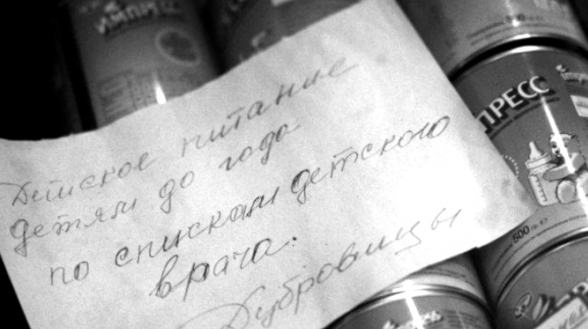 ИМПРЕСС
Детское питание
детям до года
по спискам детского
врача.
Дубровицы
ПРЕСС
500 гр. ℮